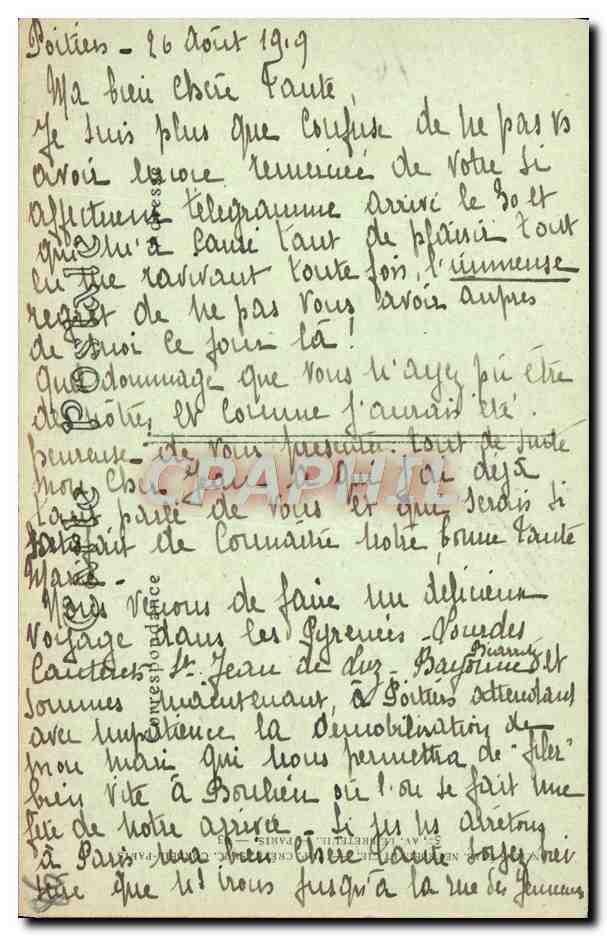 Poitiers - 26 Août 1919
Ma bien chère Tante,
Je suis plus que confuse de ne pas vs
avoir encore remerciée de votre si
affectueux télégramme arrivé le 30 et
qui m'a causé tant de plaisir tout
en me ravivant toute fois, l'immense
regret de ne pas vous avoir auprès
de moi ce jour là !
Quel dommage que vous n'ayez pu être
des nôtres, et comme j'aurais été
heureuse de vous présenter tout de suite
mon cher Jean à qui j'ai déjà
tant parlé de vous et qui serais si
satisfait de connaître notre bonne tante
Marie -
Nous venons de faire un délicieux
voyage dans les Pyrénées - Lourdes
Cauterets - St Jean de Luz - Bayonne Biarritz et
sommes maintenant à Poitiers attendant
avec impatience la démobilisation de
mon mari qui nous permettra de "filer"
bien vite à où l'on se fait une
fête de notre arrivée - Si ns ns arrêtons
à Paris ma bien chère tante soyez bien
sûre que ns irons jusqu'à la rue des
Carte Postale
Correspondance
Adresse
CPAPHIL